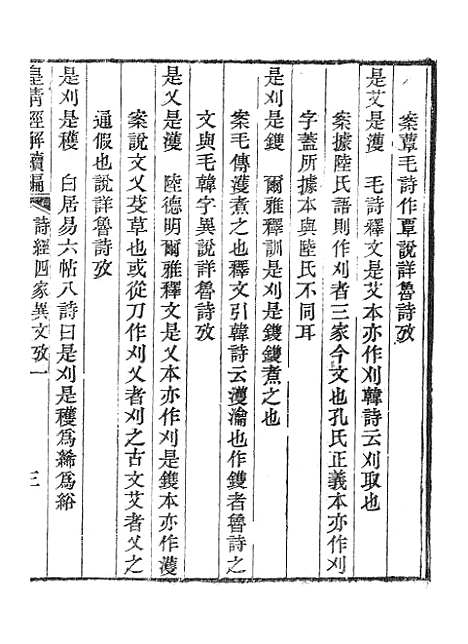 案蕈毛詩作覃說詳魯詩攷
是艾是濩　毛詩釋文是艾本亦作刈韓詩云刈取也
案據陸氏語則作刈者三家今文也孔氏正義本亦作刈
字蓋所據本與陸氏不同耳
是刈是鑊　爾雅釋訓是刈是鑊鑊煮之也
案毛傳濩煮之也釋文引韓詩云濩瀹也作鑊者魯詩之
文與毛韓字異說詳魯詩攷
是乂是濩　陸德明爾雅釋文是乂本亦作刈是鑊本亦作濩
案說文乂芟草也或從刀作刈乂者刈之古文艾者乂之
通假也說詳魯詩攷
是刈是穫　白居易六帖八詩曰是刈是穫爲絺爲綌
皇清經解續編　詩經四家異文攷一　三